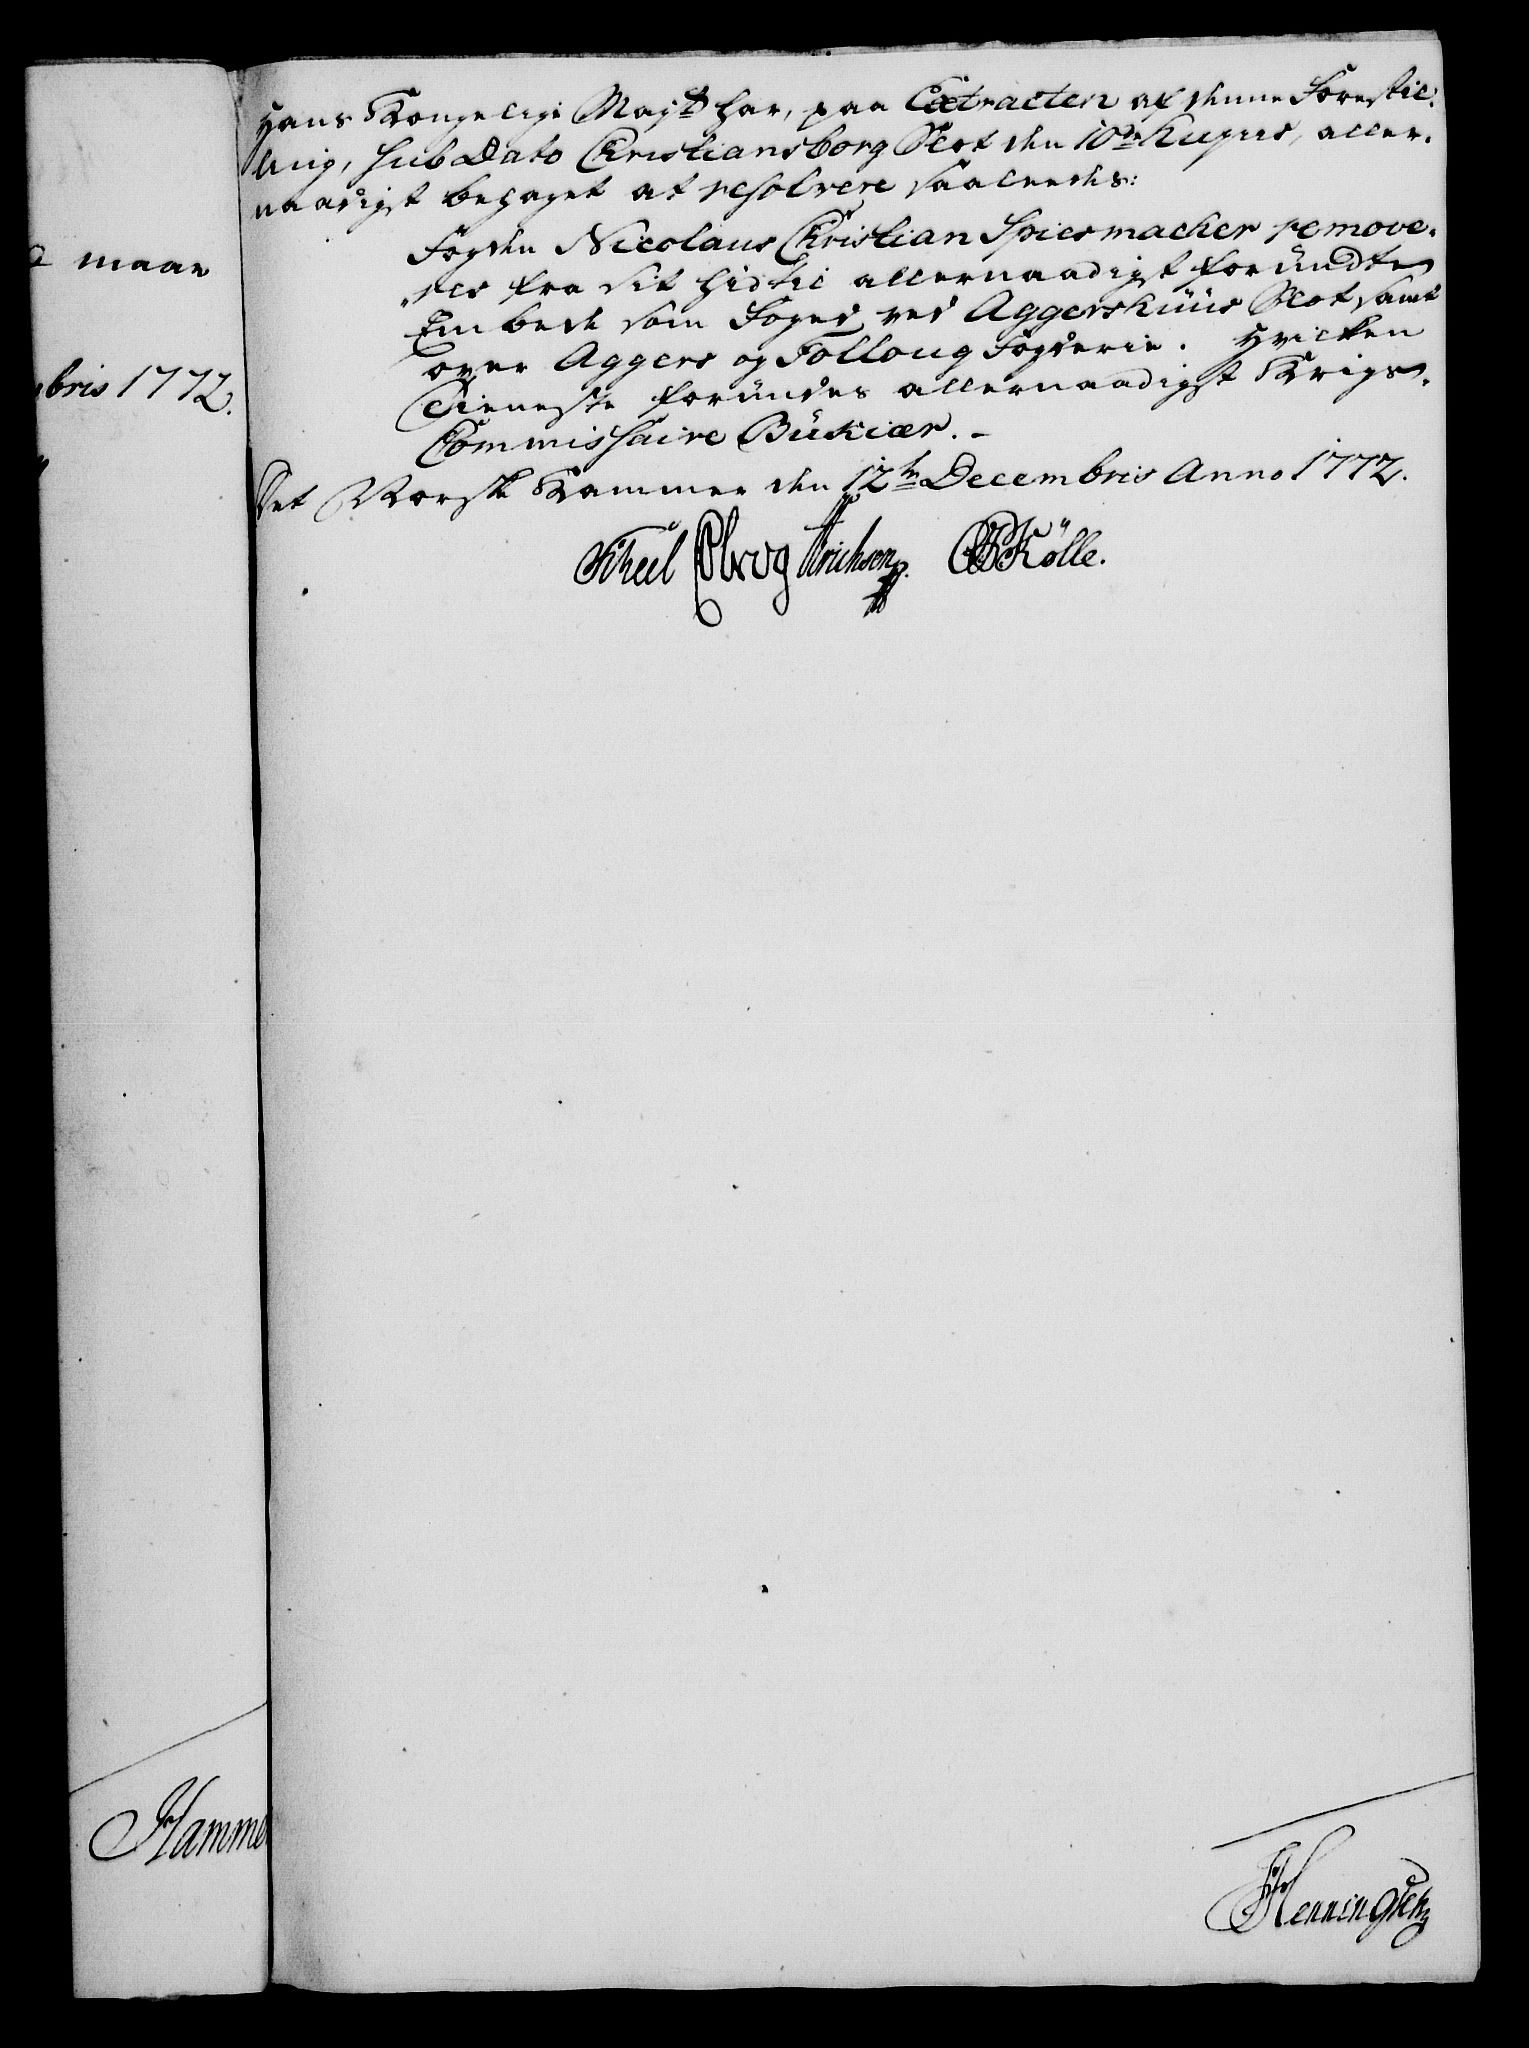 Hans Kongelige Mayts har, paa Extracten af denne Forestil-
ling, sub Dato Christiansborg Slot den 10de Hujus, aller-
naadigst behaget at resolvere saaledes:
Fogden Nicolaus Christian Spiesmacher remove-
res fra sit hidtil allernaadigst forundte
Embede som Foged ved Aggershuus Slot samt
over Aggers og Folloug Fogderie. Hvilken
Tieneste forundes allernaadigst Krigs-
Commissaire Bukiær. -
Det Norske Kammer den 12te Decembris Anno 1772.
Scheel Erichsen. Kølle.
Henningsen
maae
bris 1772.
Hamme